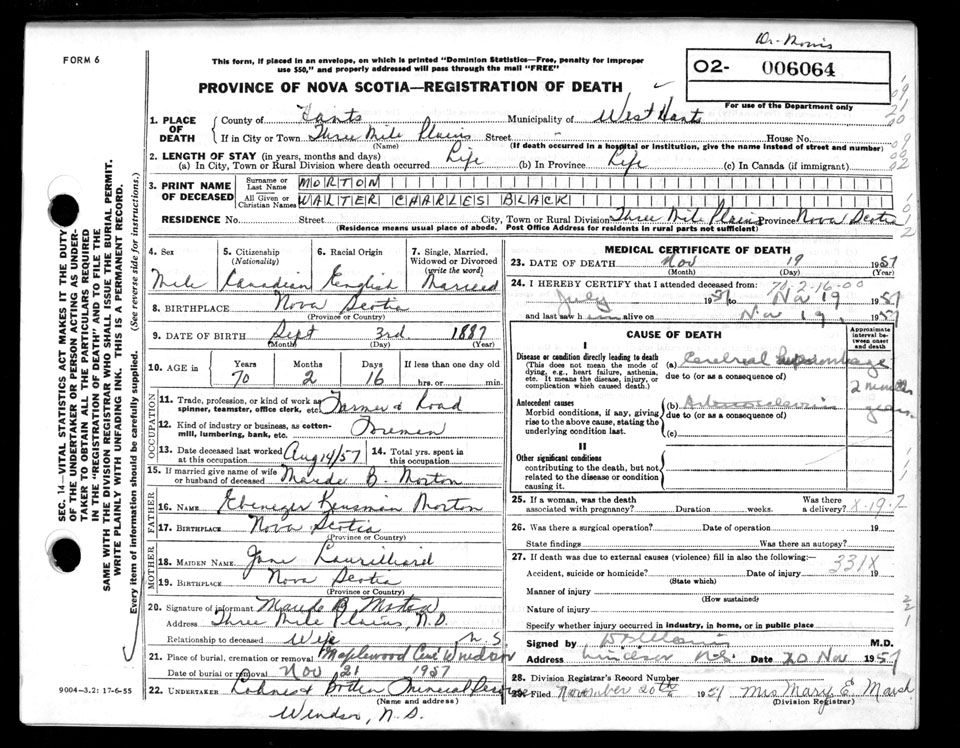 Dr. Morris
FORM 6
This form, if placed in an envelope, on which is printed "Dominion Statistics—Free, penalty for improper
use $50," and properly addressed will pass through the mail "FREE"
02- 006064
PROVINCE OF NOVA SCOTIA—REGISTRATION OF DEATH
For use of the Department only
1. PLACE OF DEATH
County of Hants Municipality of West Hants
If in City or Town Three Mile Plains Street - House No.
(Name) (If death occurred in a hospital or institution, give the name instead of street and number)
2. LENGTH OF STAY (in years, months and days)
(a) In City, Town or Rural Division where death occurred Life (b) In Province Life (c) In Canada (if immigrant)
3. PRINT NAME OF DECEASED
Surname or Last Name MORTON
All Given or Christian Names WALTER CHARLES BLACK
RESIDENCE No. Street City, Town or Rural Division Three Mile Plains Province Nova Scotia
(Residence means usual place of abode. Post Office Address for residents in rural parts not sufficient)
4. Sex 5. Citizenship (Nationality) 6. Racial Origin 7. Single, Married, Widowed or Divorced (write the word)
Male Canadian English Married
8. BIRTHPLACE Nova Scotia
(Province or Country)
9. DATE OF BIRTH Sept 3rd 1887
(Month) (Day) (Year)
10. AGE in Years Months Days If less than one day old
70 2 16 hrs. or min.
OCCUPATION
11. Trade, profession, or kind of work as spinner, teamster, office clerk, etc. Farmer & Road
12. Kind of industry or business, as cotton-mill, lumbering, bank, etc. Foreman
13. Date deceased last worked at this occupation Aug 14/57 14. Total yrs. spent in this occupation
15. If married give name of wife or husband of deceased Maude B. Morton
FATHER
16. NAME Ebenezer Kinsman Morton
17. BIRTHPLACE Nova Scotia
(Province or Country)
MOTHER
18. MAIDEN NAME Jane Laurilliard
19. BIRTHPLACE Nova Scotia
(Province or Country)
20. Signature of informant Maude B Morton
Address Three Mile Plains, N.S.
Relationship to deceased Wife N.S
21. Place of burial, cremation or removal Maplewood Cem Windsor
Date of burial or removal Nov 21 1957
22. UNDERTAKER Funeral Service
(Name and address)
Windsor, N.S.
MEDICAL CERTIFICATE OF DEATH
23. DATE OF DEATH Nov 19 1957
(Month) (Day) (Year)
70-2-16-00
24. I HEREBY CERTIFY that I attended deceased from:
July 1957 to Nov 19 1957
and last saw him alive on Nov 19, 1957
CAUSE OF DEATH
Approximate interval between onset and death
I
Disease or condition directly leading to death
(This does not mean the mode of dying, e.g., heart failure, asthenia, etc. It means the disease, injury, or complication which caused death.)
(a) Cerebral Hemorrhage
due to (or as a consequence of)
2 months
Antecedent causes
Morbid conditions, if any, giving rise to the above cause, stating the underlying condition last.
(b) Arteriosclerosis years
due to (or as a consequence of)
(c)
II
Other significant conditions
contributing to the death, but not related to the disease or condition causing it.
25. If a woman, was the death associated with pregnancy? Duration weeks. Was there a delivery?
26. Was there a surgical operation? Date of operation 19
State findings Was there an autopsy?
27. If death was due to external causes (violence) fill in also the following:—
331X
Accident, suicide or homicide? Date of injury 19
(State which)
Manner of injury
(How sustained)
Nature of injury
Specify whether injury occurred in industry, in home, or in public place
Signed by M.D.
Address Windsor N.S. Date 20 Nov 1957
28. Division Registrar's Record Number
29. Filed November 20th 1957 Mrs Mary E. Marsh
(Division Registrar)
SEC. 14—VITAL STATISTICS ACT MAKES IT THE DUTY
OF THE UNDERTAKER OR PERSON ACTING AS UNDER-
TAKER TO OBTAIN ALL THE PARTICULARS REQUIRED
IN THE "REGISTRATION OF DEATH" AND TO FILE THE
SAME WITH THE DIVISION REGISTRAR WHO SHALL ISSUE THE BURIAL PERMIT.
WRITE PLAINLY WITH UNFADING INK. THIS IS A PERMANENT RECORD.
Every item of information should be carefully supplied. (See reverse side for instructions.)
9004-3,2: 17-6-55